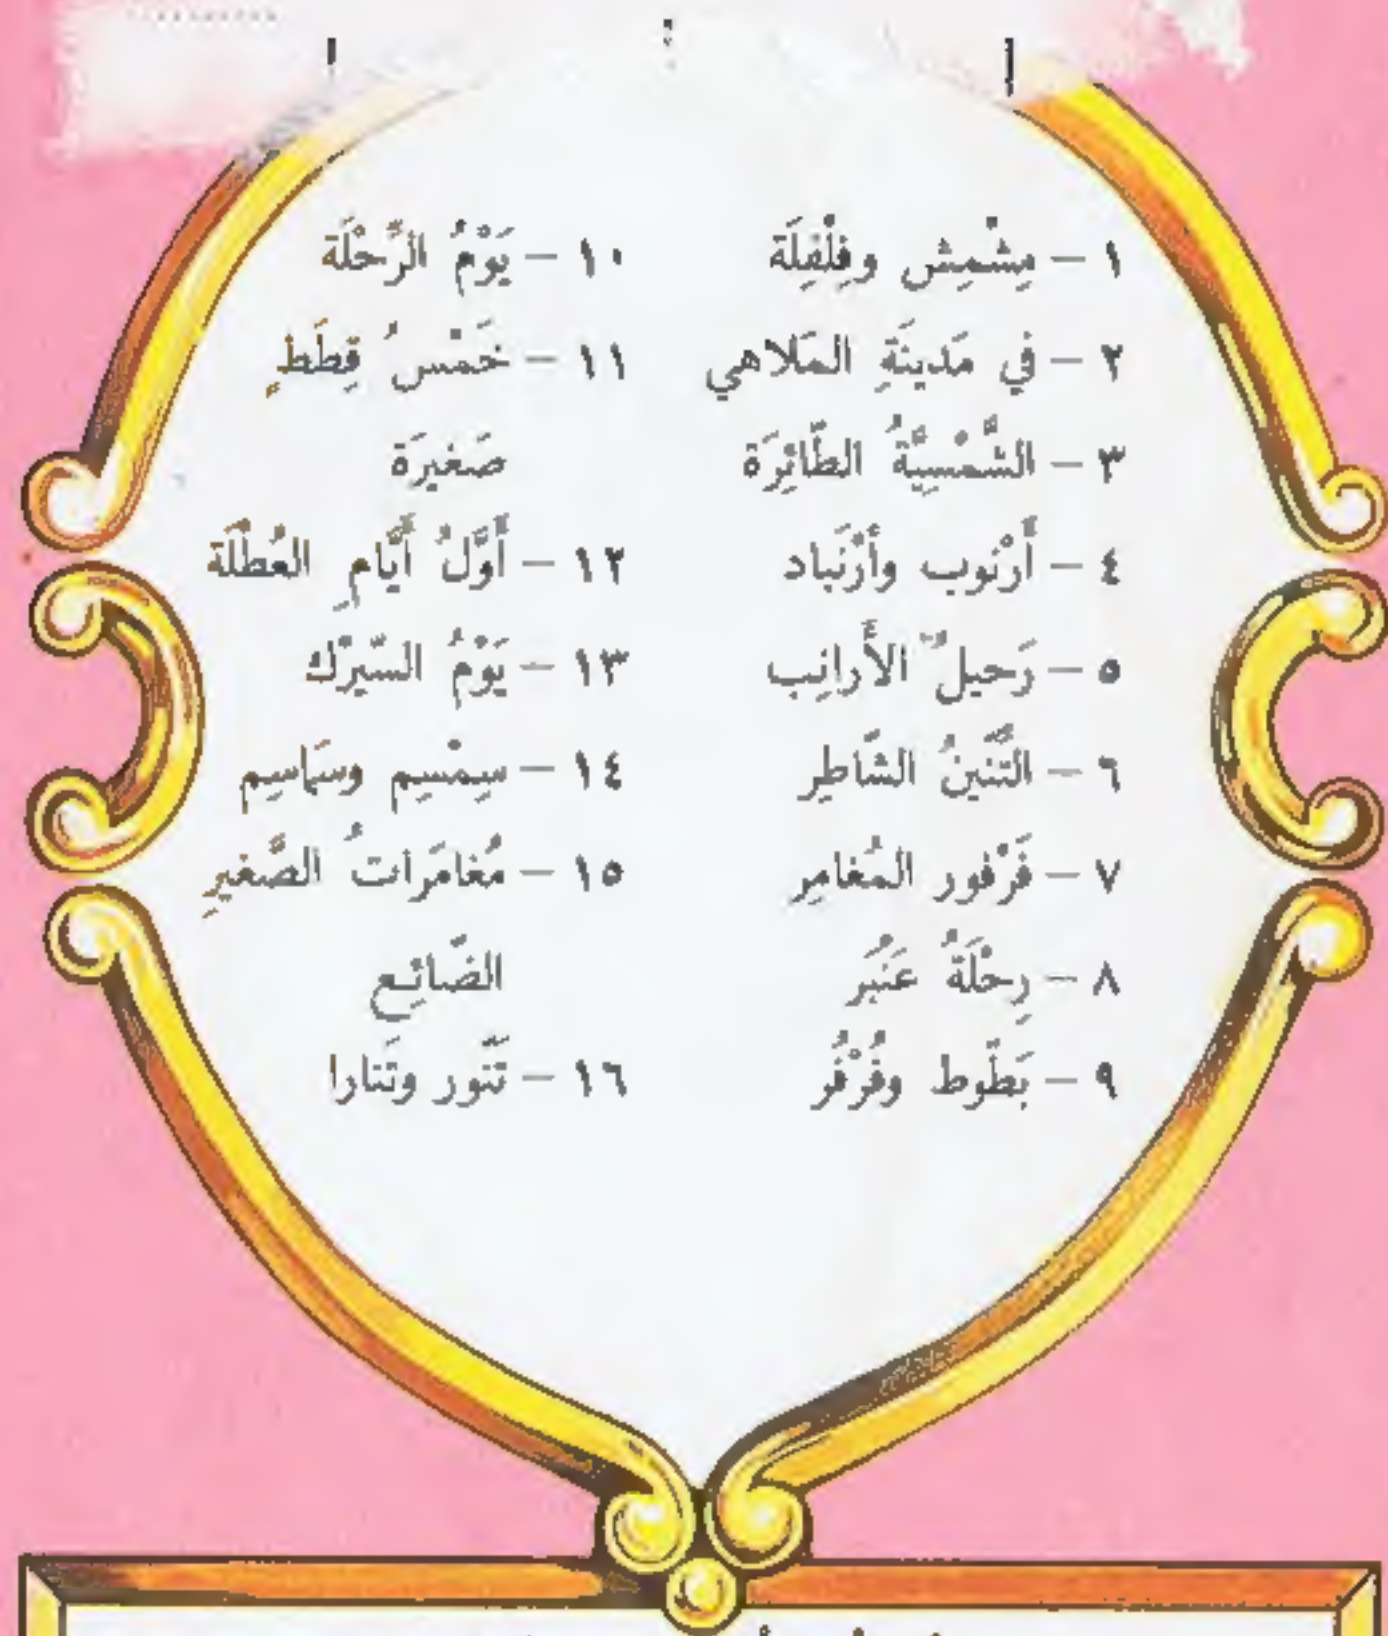 ١ – مِشْمِش وفِلْفِلَة
٢ – في مَدينَةِ المَلاهي
٣ – الشَّمْسِيَّةُ الطّائِرَة
٤ – أَرْنوب وأَرْنَباد
٥ – رَحيلُ الأَرانِب
٦ – التِّنّينُ الشّاطِر
٧ – فَرْفور المُغامِر
٨ – رِحْلَةُ عَنْبَر
٩ – بَطّوط وفُرْفُر
١٠ – يَوْمُ الرِّحْلَة
١١ – خَمْسُ قِطَطٍ
صَغيرَة
١٢ – أَوَّلُ أَيّامِ العُطْلَة
١٣ – يَوْمُ السّيرْك
١٤ – سِمْسِم وسَماسِم
١٥ – مُغامَراتُ الصَّغيرِ
الضّائِع
١٦ – تَنّور وتَنارا